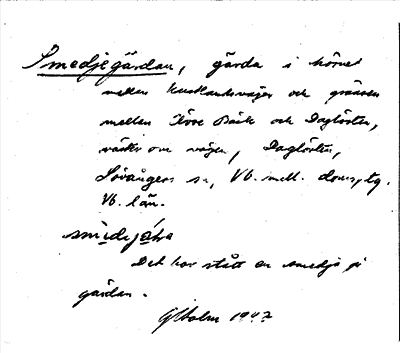 Smedjegärdan, gärda i hörnet
mellan kustlandsvägen och gränsen
mellan Övre Bäck och Daglösten,
väster om vägen, Daglösten,
Lövångers sn, Vb. mell. doms, tg.
Vb. län.
Det har stått en smedja på
gärdan.
Holm 1947